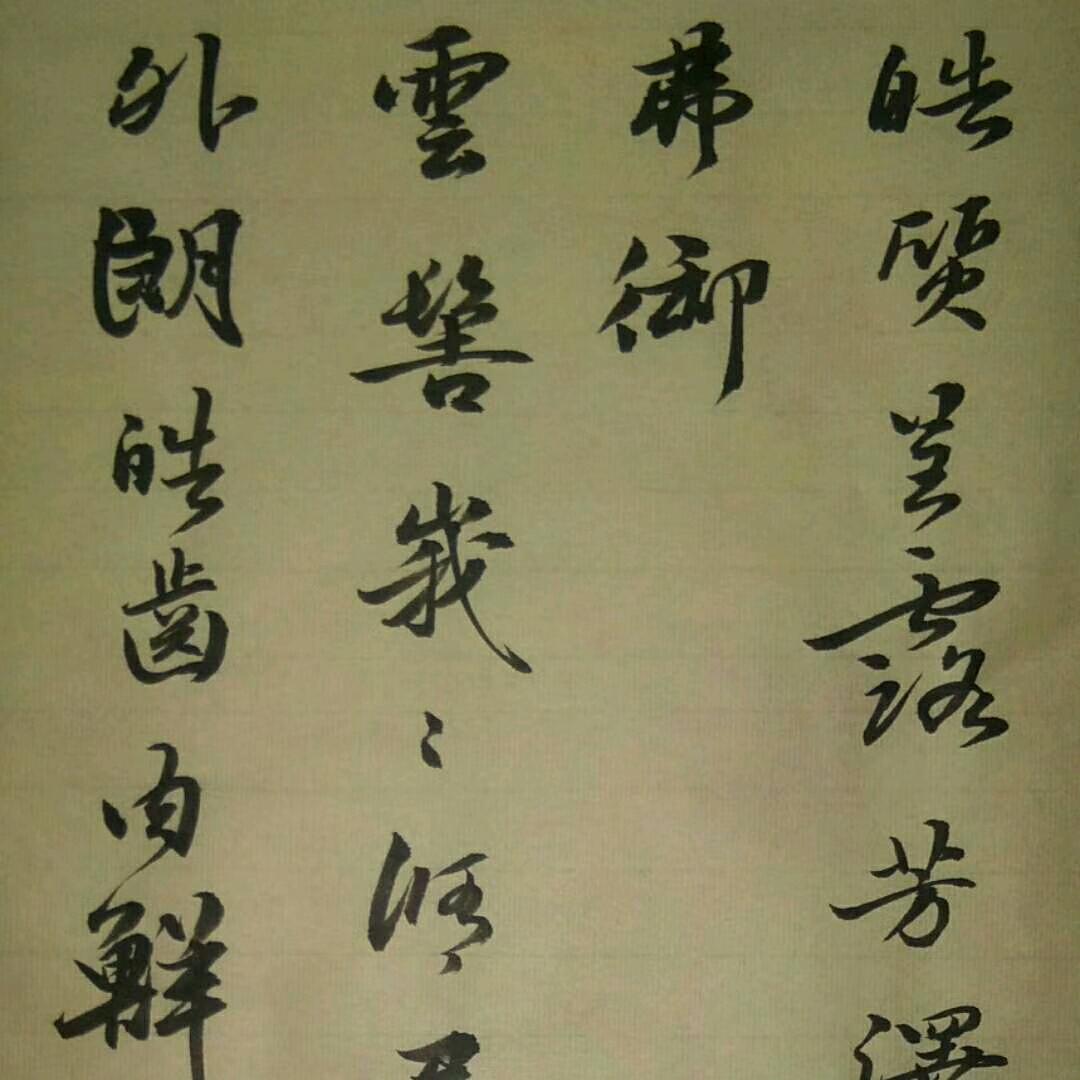 皓質呈露芳澤
弗御
雲髻峩〻脩
外朗皓齒內鮮